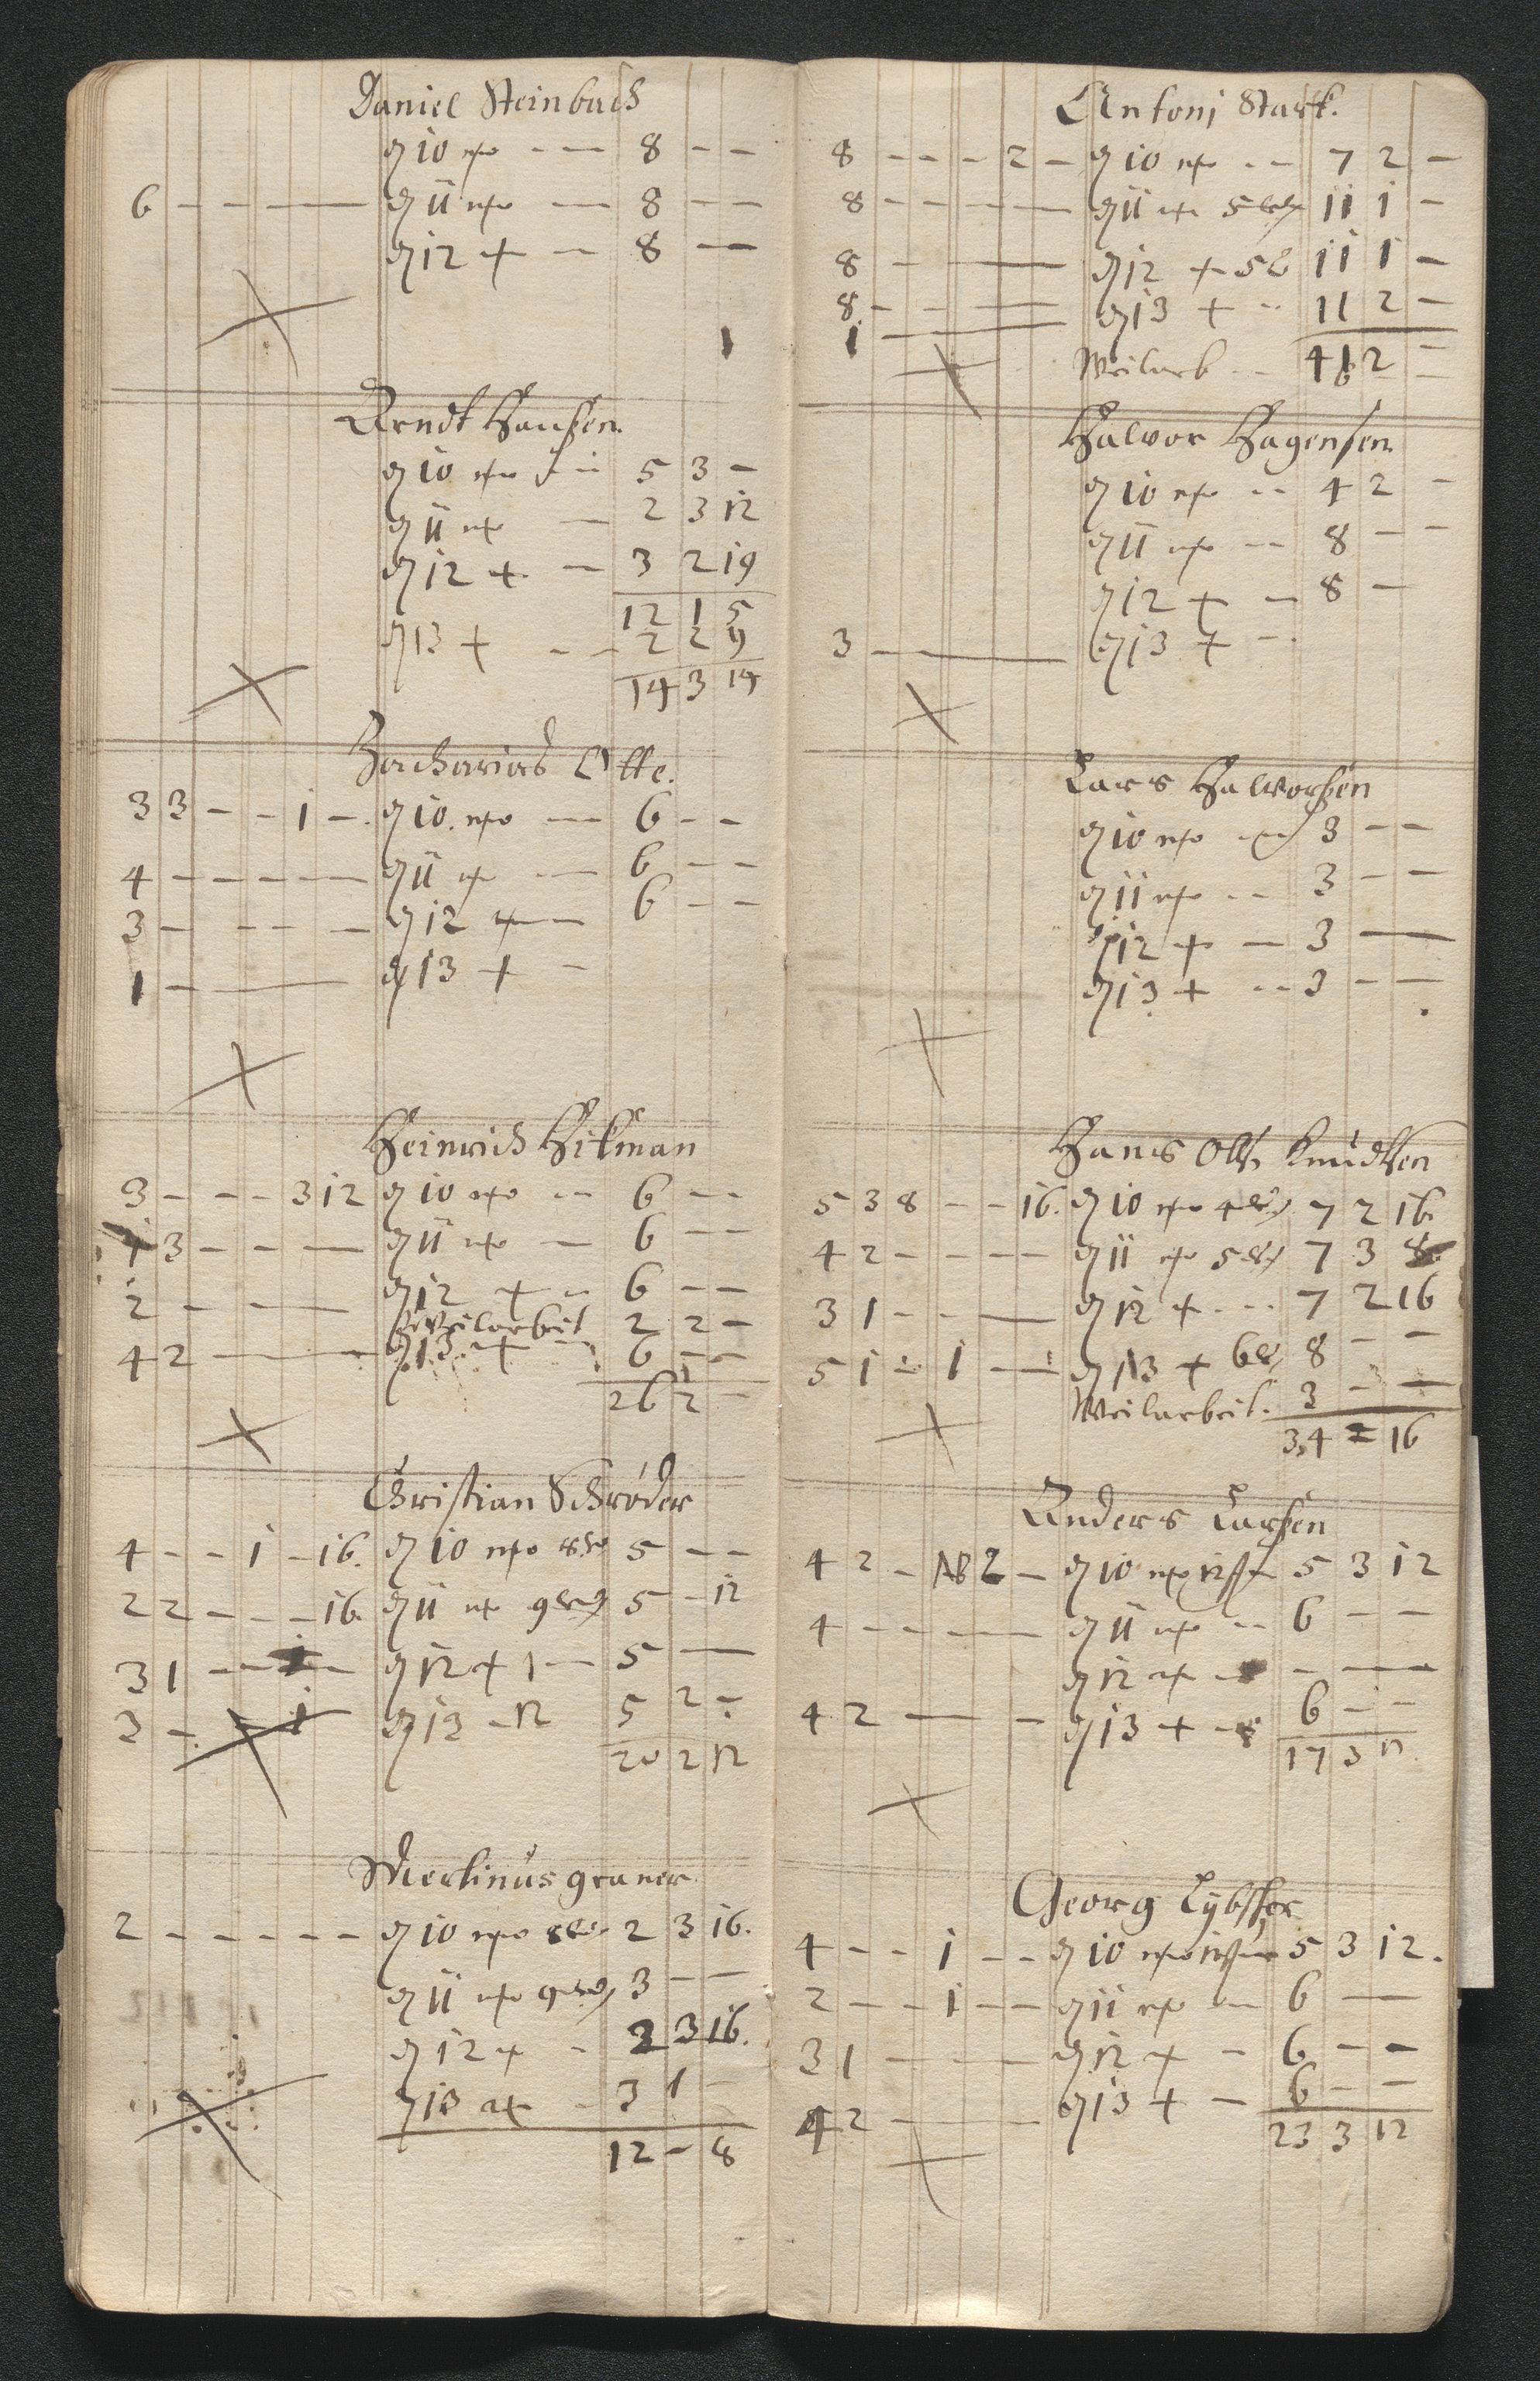 Daniel Steinbach
10 — — 8 — —
6 — — — 11 — 8 — —
12 + — 8 —
1
Arndt Hanßen.
10 — 5 3 —
11 — 2 3 12
12 + — 3 2 19
12 1 5
13 + — — 2 2 9
14 3 14
Zacharias Otte.
3 3 — — 1 — 10 — 6 — —
4 — — — — — 11 — 6 — —
3 — — — — 12 + — 6 — —
1 — — 13 + —
Heinrich Hikman
3 — — — 3 12 10 — 6 — —
3 — — — — 11 — 6 — —
2 — — — 12 + — 6 — —
Weilarbeit 2 2 —
4 2 — — 13 + — 6 — —
26 2 —
Christian Schröder
4 — — 1 — 16. 10 5 — —
2 2 — — — 16. 11 5 — 12
3 1 — — 12 + 1 — 5 —
3 — — 1 13 — 12 5 2 —
20 2 12
Merlinus graner
2 — — — — — 10 2 3 16.
11 3 — —
12 + — 2 3 16.
13 — 3 1 —
12 — 8
Antoni Stark.
8 — — — 2 — 10 — — 7 2 —
8 — — — — 11 5 11 1 —
8 — — 12 + 5 11 1 —
8 — — — 13 + — 11 2 —
1 —
Weilarb — 41 2 —
Halvor Hagensen
10 — — 4 2 —
11 — — 8 —
12 + — 8 —
3 — — 13 + —
Lars Halvorßen
10 3 — —
11 — — 3 — —
12 + — 3 —
13 + — — 3 — —
Hans Olß. Knudtßen
5 3 8 — — 16. 10 4 7 2 16
4 2 — — — — 11 5 7 3 8
3 1 — — — 12 + — — 7 2 16
5 1 — 1 — 13 + 6 8 — —
Weilarbeit. 3 — —
34 2 16
Anders Larßen
4 2 — 2 — 10 5 3 12
4 — — — — 11 — — 6 — —
12 — — —
4 2 — — 13 + — 6 — —
17 3 12
Georg Lybßker
4 — — 1 — — 10 5 3 12.
2 — — 1 — — 11 — 6 —
3 1 — — — 12 + — 6 — —
4 2 — — 13 + — 6 — —
23 3 12